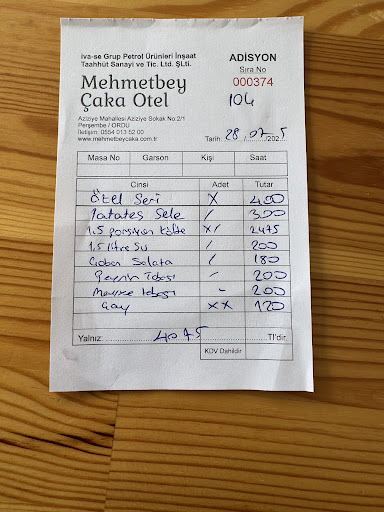 iva-se Grup Petrol Ürünleri İnşaat
Taahhüt Sanayi ve Tic. Ltd. ŞLti.
Mehmetbey
Çaka Otel
Aziziye Mahallesi Aziziye Sokak No:2/1
Perşembe / ORDU
İletişim: 0554 013 52 00
www.mehmetbeycaka.com.tr
ADİSYON
Sıra No
000374
104
Tarih: 28 / 07 / 2025
Masa No Garson Kişi Saat
Cinsi Adet Tutar
Otel Seri X 400
Patates Sele / 300
1.5 porsiyon Köfte X/ 2475
1.5 litre Su / 200
Çoban Salata / 180
Peynir Tabağı / 200
Meyve tabağı - 200
Çay XX 120
Yalnız: 4075 Tl'dir.
KDV Dahildir